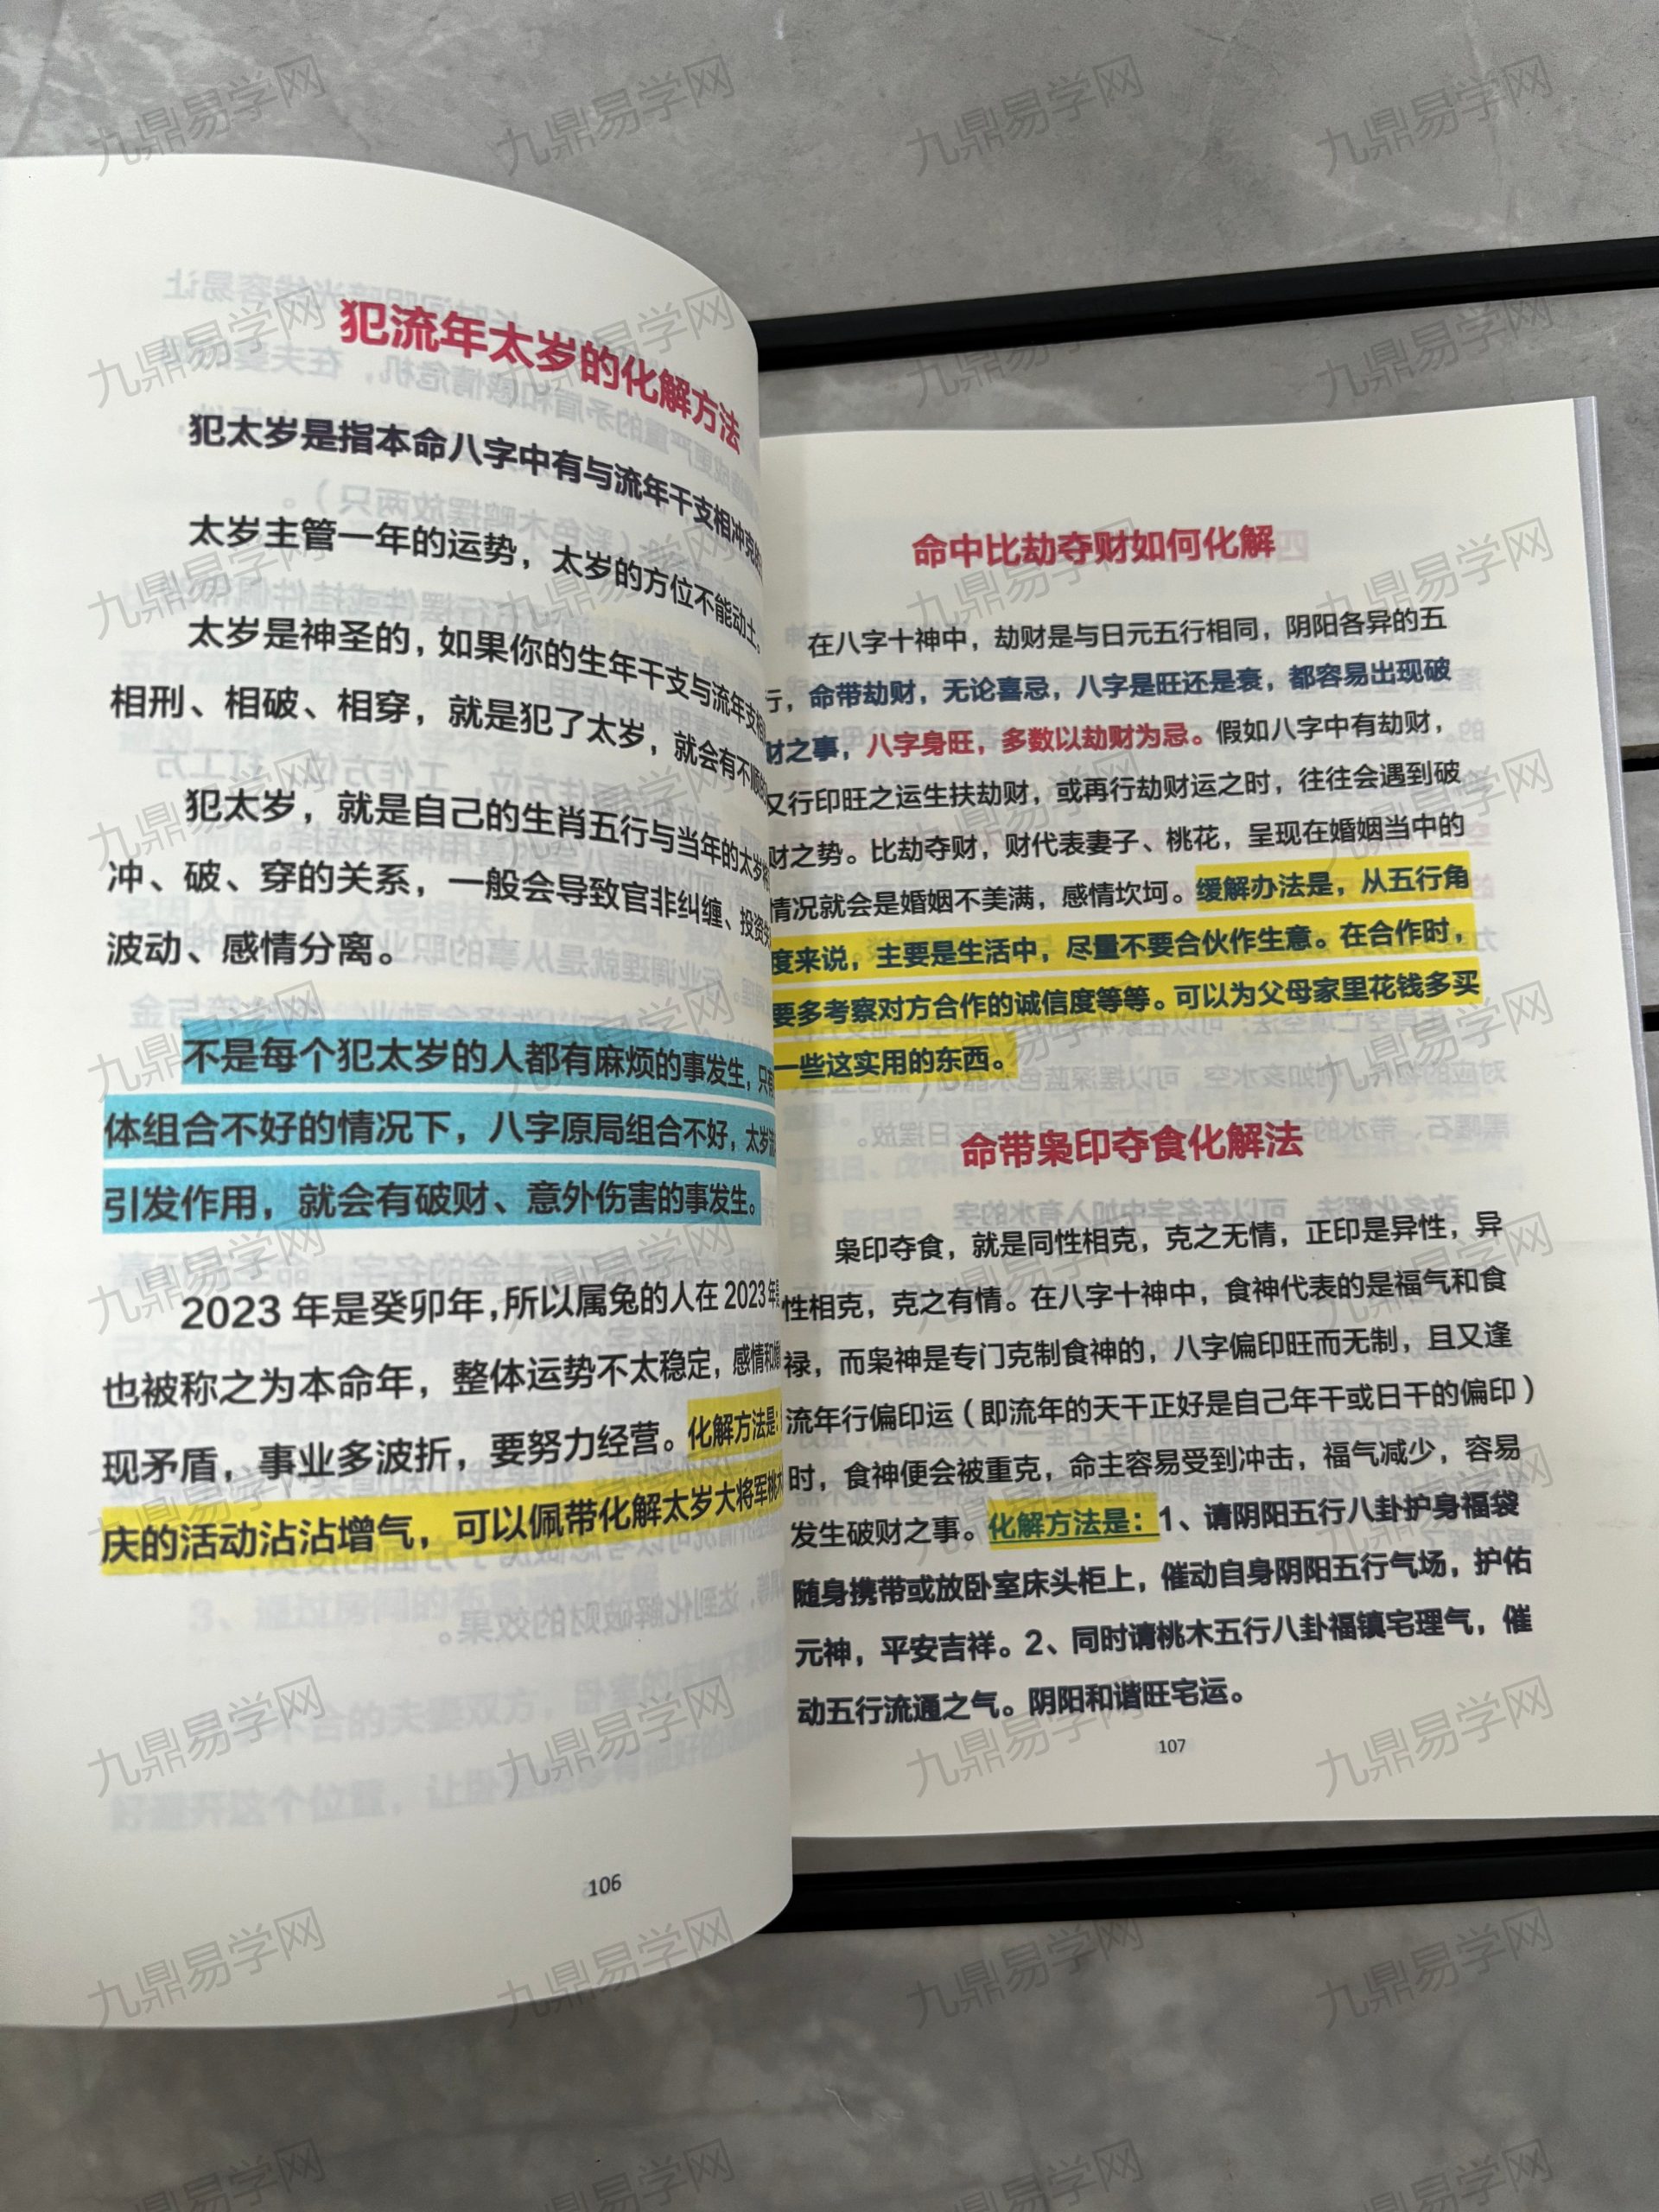 犯流年太岁的化解方法
犯太岁是指本命八字中有与流年干支相冲克
太岁主管一年的运势，太岁的方位不能动土。
太岁是神圣的，如果你的生年干支与流年支相
相刑、相破、相穿，就是犯了太岁，就会有不顺的
犯太岁，就是自己的生肖五行与当年的太岁
冲、破、穿的关系，一般会导致官非纠缠、投资失
波动、感情分离。
不是每个犯太岁的人都有麻烦的事发生，只有
体组合不好的情况下，八字原局组合不好，太岁流
引发作用，就会有破财、意外伤害的事发生。
2023 年是癸卯年，所以属兔的人在 2023 年
也被称之为本命年，整体运势不太稳定，感情和
现矛盾，事业多波折，要努力经营。化解方法是：
庆的活动沾沾增气，可以佩带化解太岁大将军桃木
106
命中比劫夺财如何化解
在八字十神中，劫财是与日元五行相同，阴阳各异的五
行，命带劫财，无论喜忌，八字是旺还是衰，都容易出现破
财之事，八字身旺，多数以劫财为忌。假如八字中有劫财，
又行印旺之运生扶劫财，或再行劫财运之时，往往会遇到破
财之势。比劫夺财，财代表妻子、桃花，呈现在婚姻当中的
情况就会是婚姻不美满，感情坎坷。缓解办法是，从五行角
度来说，主要是生活中，尽量不要合伙作生意。在合作时，
要多考察对方合作的诚信度等等。可以为父母家里花钱多买
一些这实用的东西。
命带枭印夺食化解法
枭印夺食，就是同性相克，克之无情，正印是异性，异
性相克，克之有情。在八字十神中，食神代表的是福气和食
禄，而枭神是专门克制食神的，八字偏印旺而无制，且又逢
流年行偏印运（即流年的天干正好是自己年干或日干的偏印）
时，食神便会被重克，命主容易受到冲击，福气减少，容易
发生破财之事。化解方法是：1、请阴阳五行八卦护身福袋
随身携带或放卧室床头柜上，催动自身阴阳五行气场，护佑
元神，平安吉祥。2、同时请桃木五行八卦福镇宅理气，催
动五行流通之气。阴阳和谐旺宅运。
107
九鼎易学网